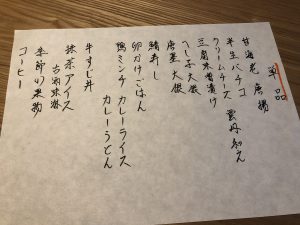 単品
甘海老 唐揚
半生バチコ
クリームチーズ 雲丹和え
豆腐味噌漬け
へしこ大根
唐墨大根
鯖寿し
卵かけごはん
鴨ミンチカレーライス
カレーうどん
牛すじ丼
抹茶アイス
季節の果物
コーヒー